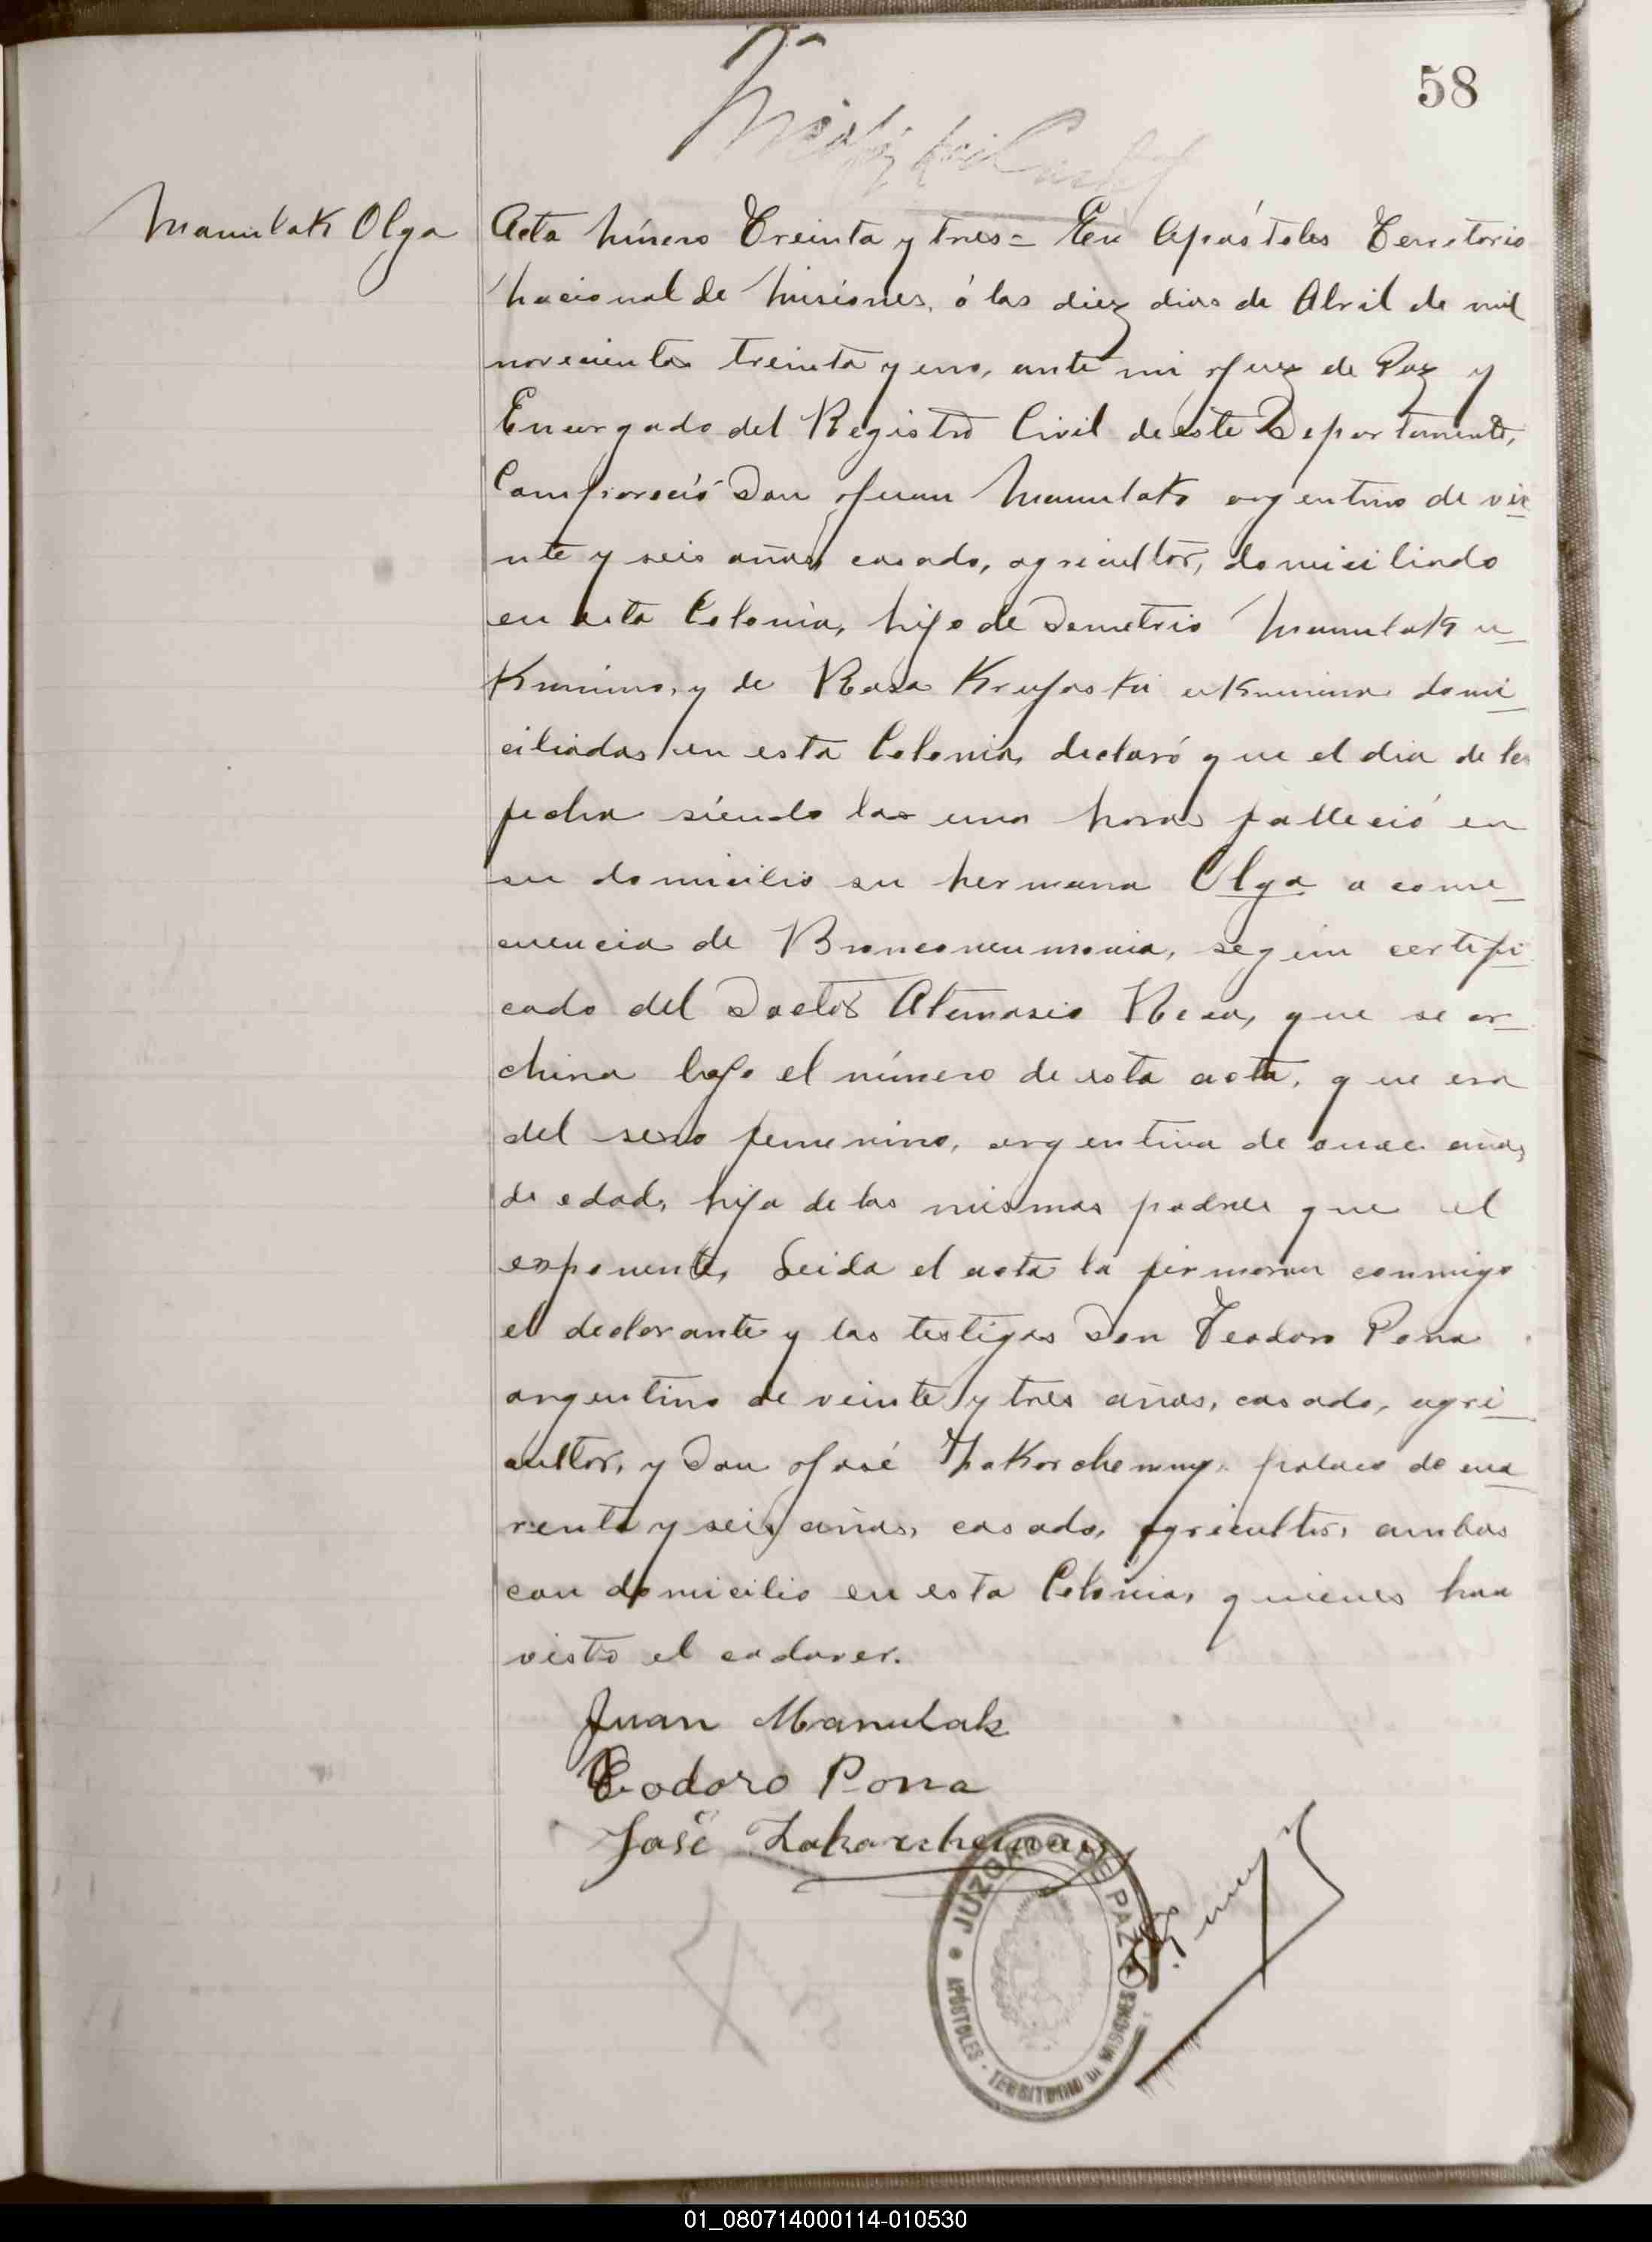 58
Manulak Olga
Acta Número Treinta y tres = En Apóstoles Territorio
Nacional de Misiones, á los diez dias de Abril de mil
novecientos treinta y uno, ante mi Juez de Paz y
Encargado del Registro Civil de este Departamento,
Compareció Don Juan Manulak argentino de vei
nte y seis años, casado, agricultor, domiciliado
en esta Colonia, hijo de Demetrio Manulak u
kranino, y de Rosa ukranina domi
ciliados en esta Colonia, declaró que el dia de la
fecha siendo las una horas falleció en
su domicilio su hermana Olga a conse
cuencia de Bronconeumonia, según certifi
cado del Doctor Atanasio, que se ar
chiva bajo el número de esta acta, que era
del sexo femenino, argentina de once años
de edad, hija de los mismos padres que el
exponente, Leida el acta la firmaron conmigo
el declarante y los testigos Don Teodoro Pona
argentino de veinte y tres años, casado, agri
cultor, y Don José polaco de cua
renta y seis años, casado, agricultor, ambos
con domicilio en esta Colonia, quienes han
visto el cadaver.
Juan Manulak
Teodoro Pona
José
JUZGADO DE PAZ
APÓSTOLES - TERRITORIO DE MISIONES
01_080714000114-010530